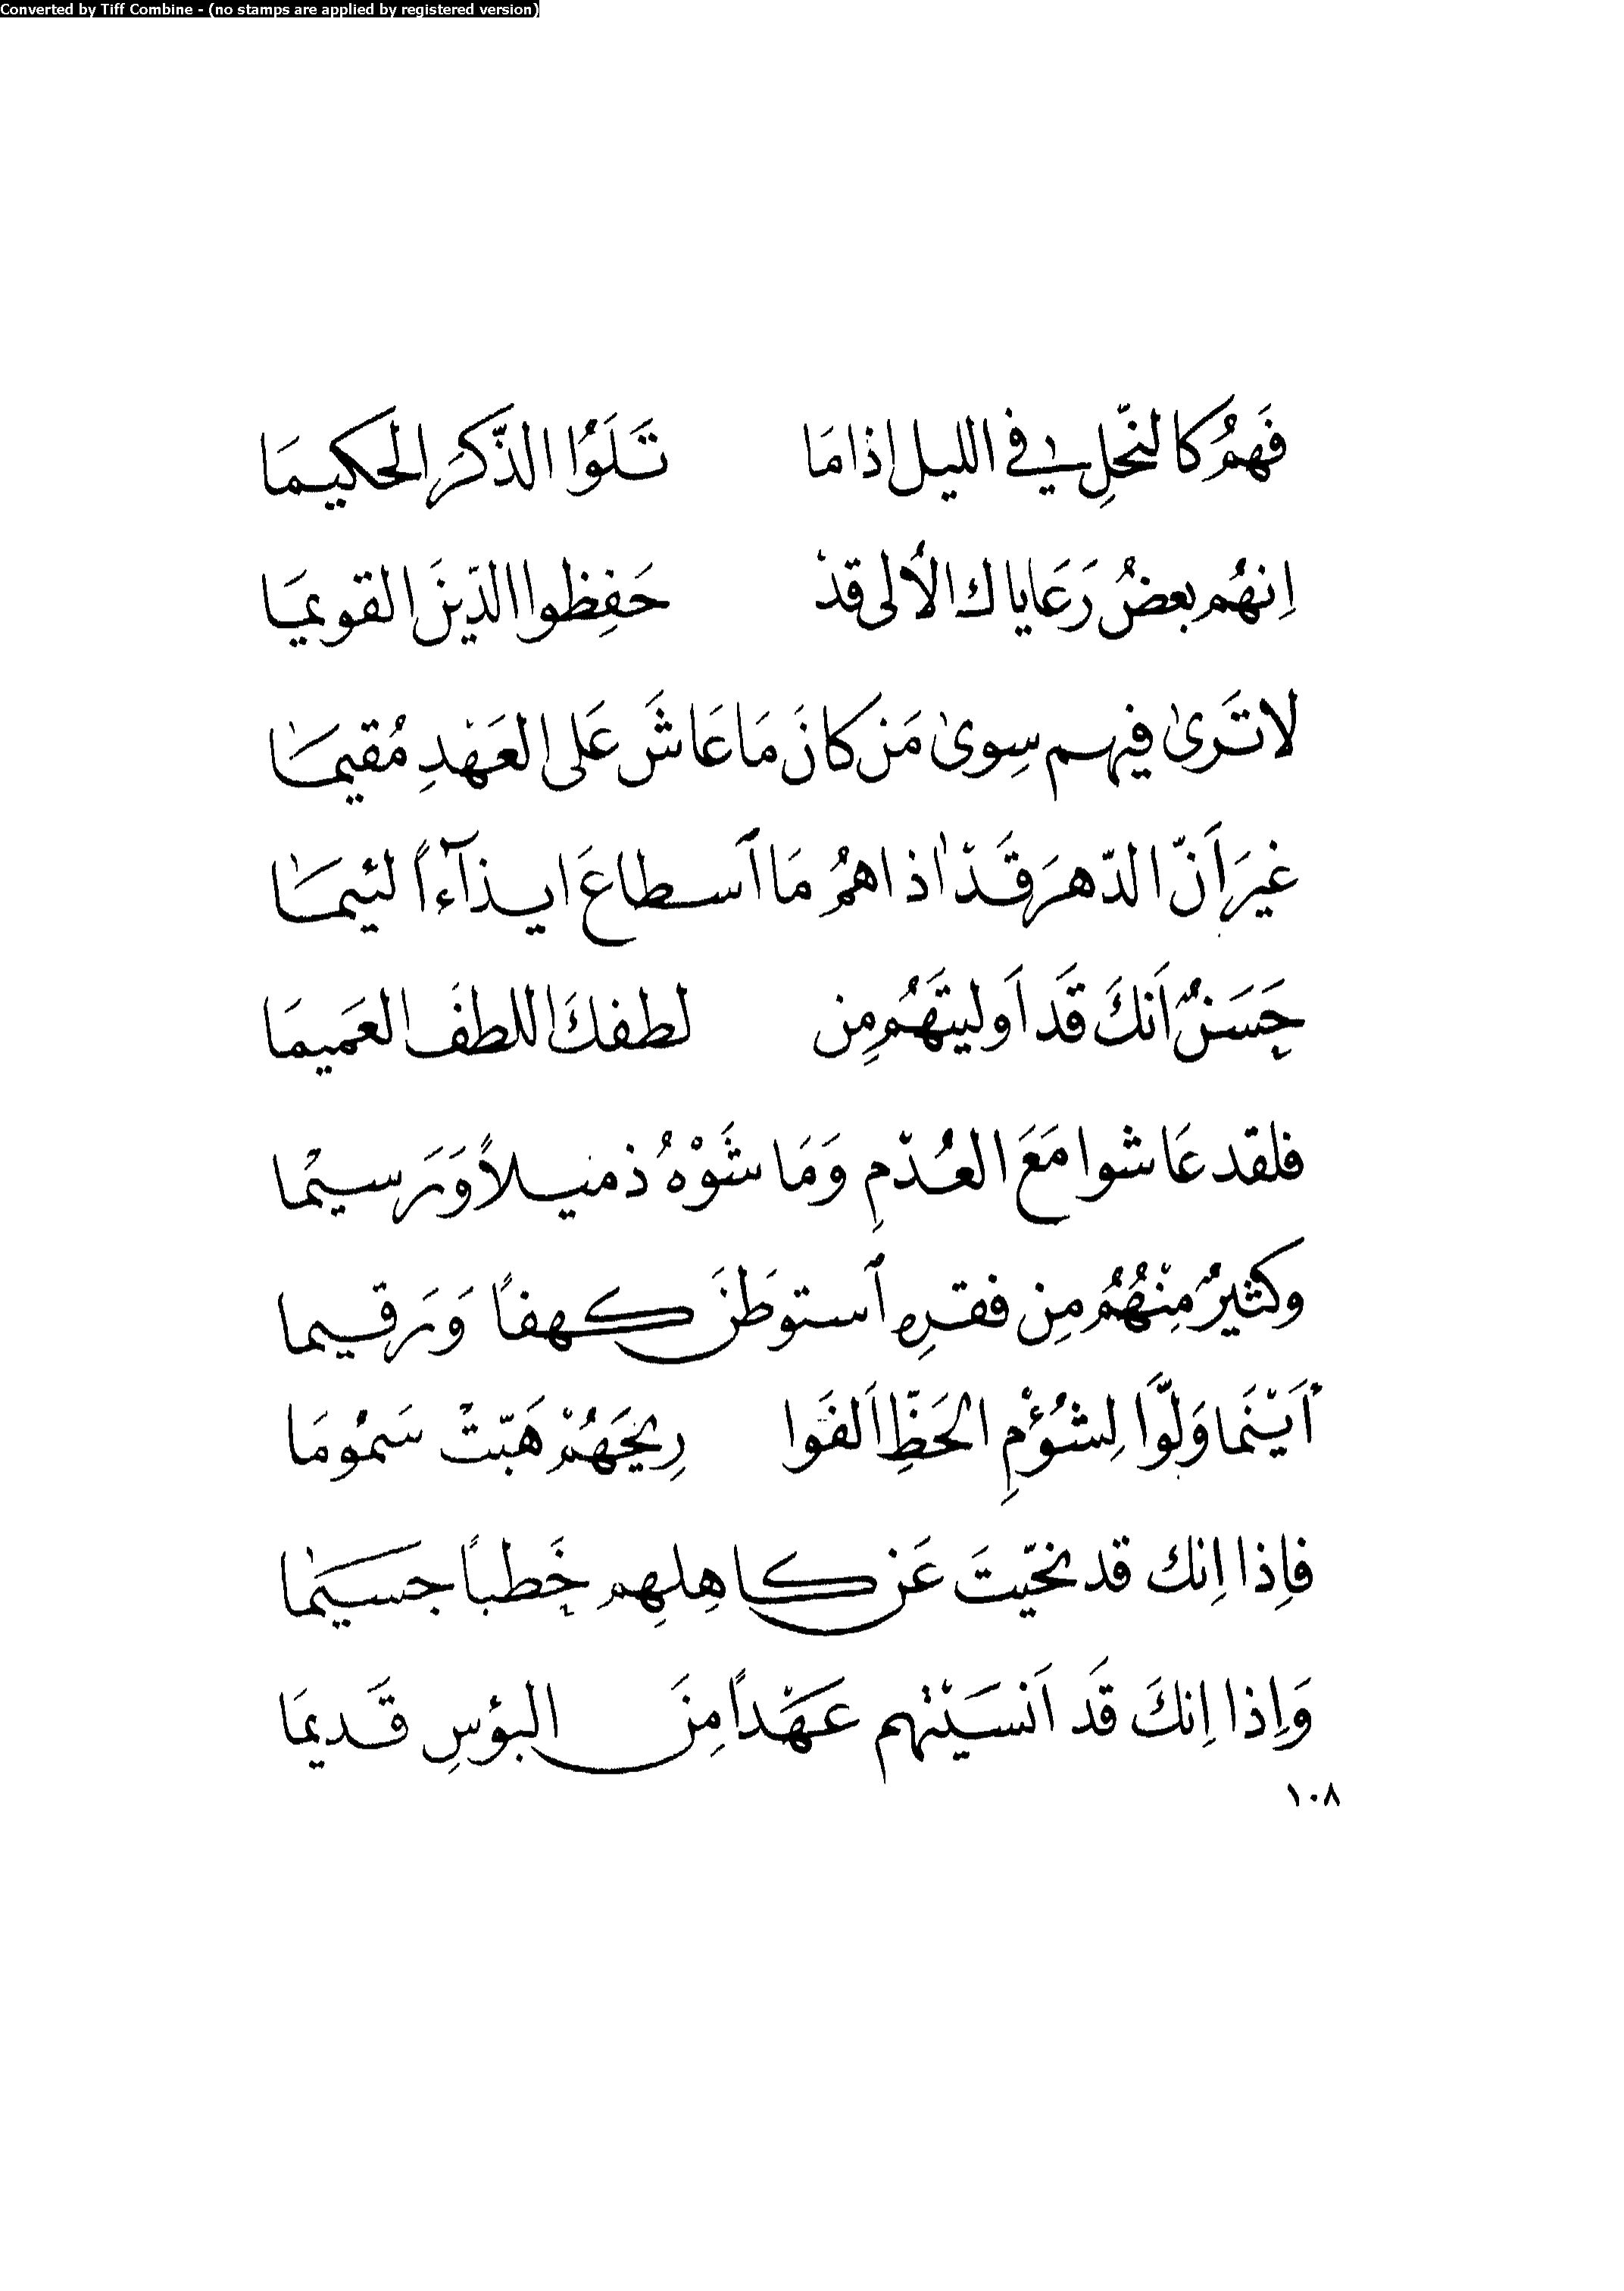 Converted by Tiff Combine - (no stamps are applied by registered version)
فَهمُ كالنحّلِ في الليل اذا مَا تَلَوُا الذّكرَ الحكيمَا
اِنهُم بعضُ رَعَايا ك الأُلى قدْ حَفِظوا الدّينَ القويمَا
لا تَرىٰ فيهم سِوىٰ مَن كانَ مَا عَاشَ عَلى العَهْدِ مُقيمَا
غيرَ اَنّ الدّهرَ قَدْ اٰذاهمُ مَا ٱسطاعَ ايذآءاً لئيمَا
حَسَنٌ اَنكَ قَد اَوليتَهُم مِن لطفكَ اللطفَ العَميمَا
فلقد عَاشوا مَعَ العُدْمِ وَمَا شَوْهُ ذميلاً وَرَسيمْا
وكثيرٌ مِنْهُمُ مِن فقرهِ ٱستوطَنَ كهفاً وَرَقيما
أَيْنَما وَلَّوا لِشُؤْمِ الحَظِّ اَلفَوا رِيحَهُمْ هَبّتْ سَمُومَا
فاِذا اِنك قد نحّيتَ عَن كاهِلِهِم خَطباً جسَيمَا
وَاِذا اِنكَ قَد اَنسَيْتهم عَهْداً مِنَ البؤسِ قَديمَا
١٠٨